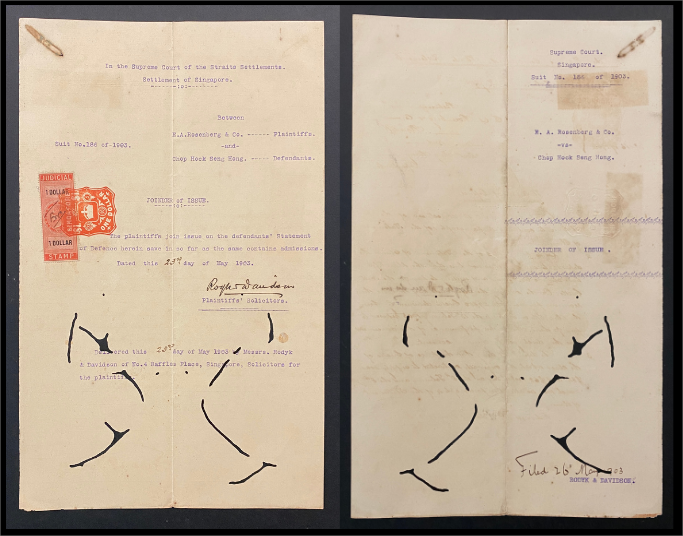 In the Supreme Court of the Straits Settlements.
Settlement of Singapore.
Between
Suit No.186 of 1903.
M.A.Rosenberg & Co. ----- Plaintiffs.
-and-
Chop Hock Seng Hong. ---- Defendants.
JUDICIAL
1 DOLLAR
1 DOLLAR
STAMP
JOINDER OF ISSUE.
The plaintiffs join issue on the defendants' Statement
of Defence herein save in so far as the same contains admissions.
Dated this 23rd day of May 1903.
Rodyk & Davidson
Plaintiffs' Solicitors.
Delivered this 23rd day of May 1903 Messrs. Rodyk
& Davidson of No.4 Raffles Place, Singapore, Solicitors for
the
Supreme Court.
Singapore.
Suit No. 186 of 1903.
M. A. Rosenberg & Co.
-vs-
Chop Hock Seng Hong.
JOINDER OF ISSUE.
Filed 26 May 903
RODYK & DAVIDSON.